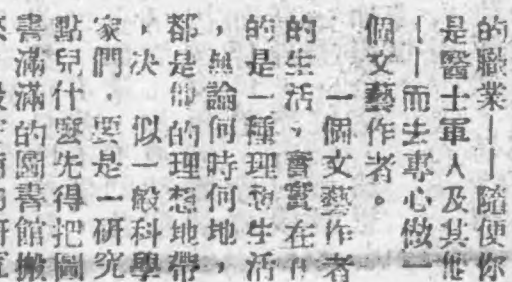 的職業——隨便你
是醫士軍人及其他
——而去專心做一
個文藝作者。
一個文藝作者
的生活,實實在在
的是一種理想生活
,無論何時何地,
都是他的理想地帶
,决不似一般科學
家們,要是一研究
點兒什麼先得把圖
書滿滿的圖書館搬